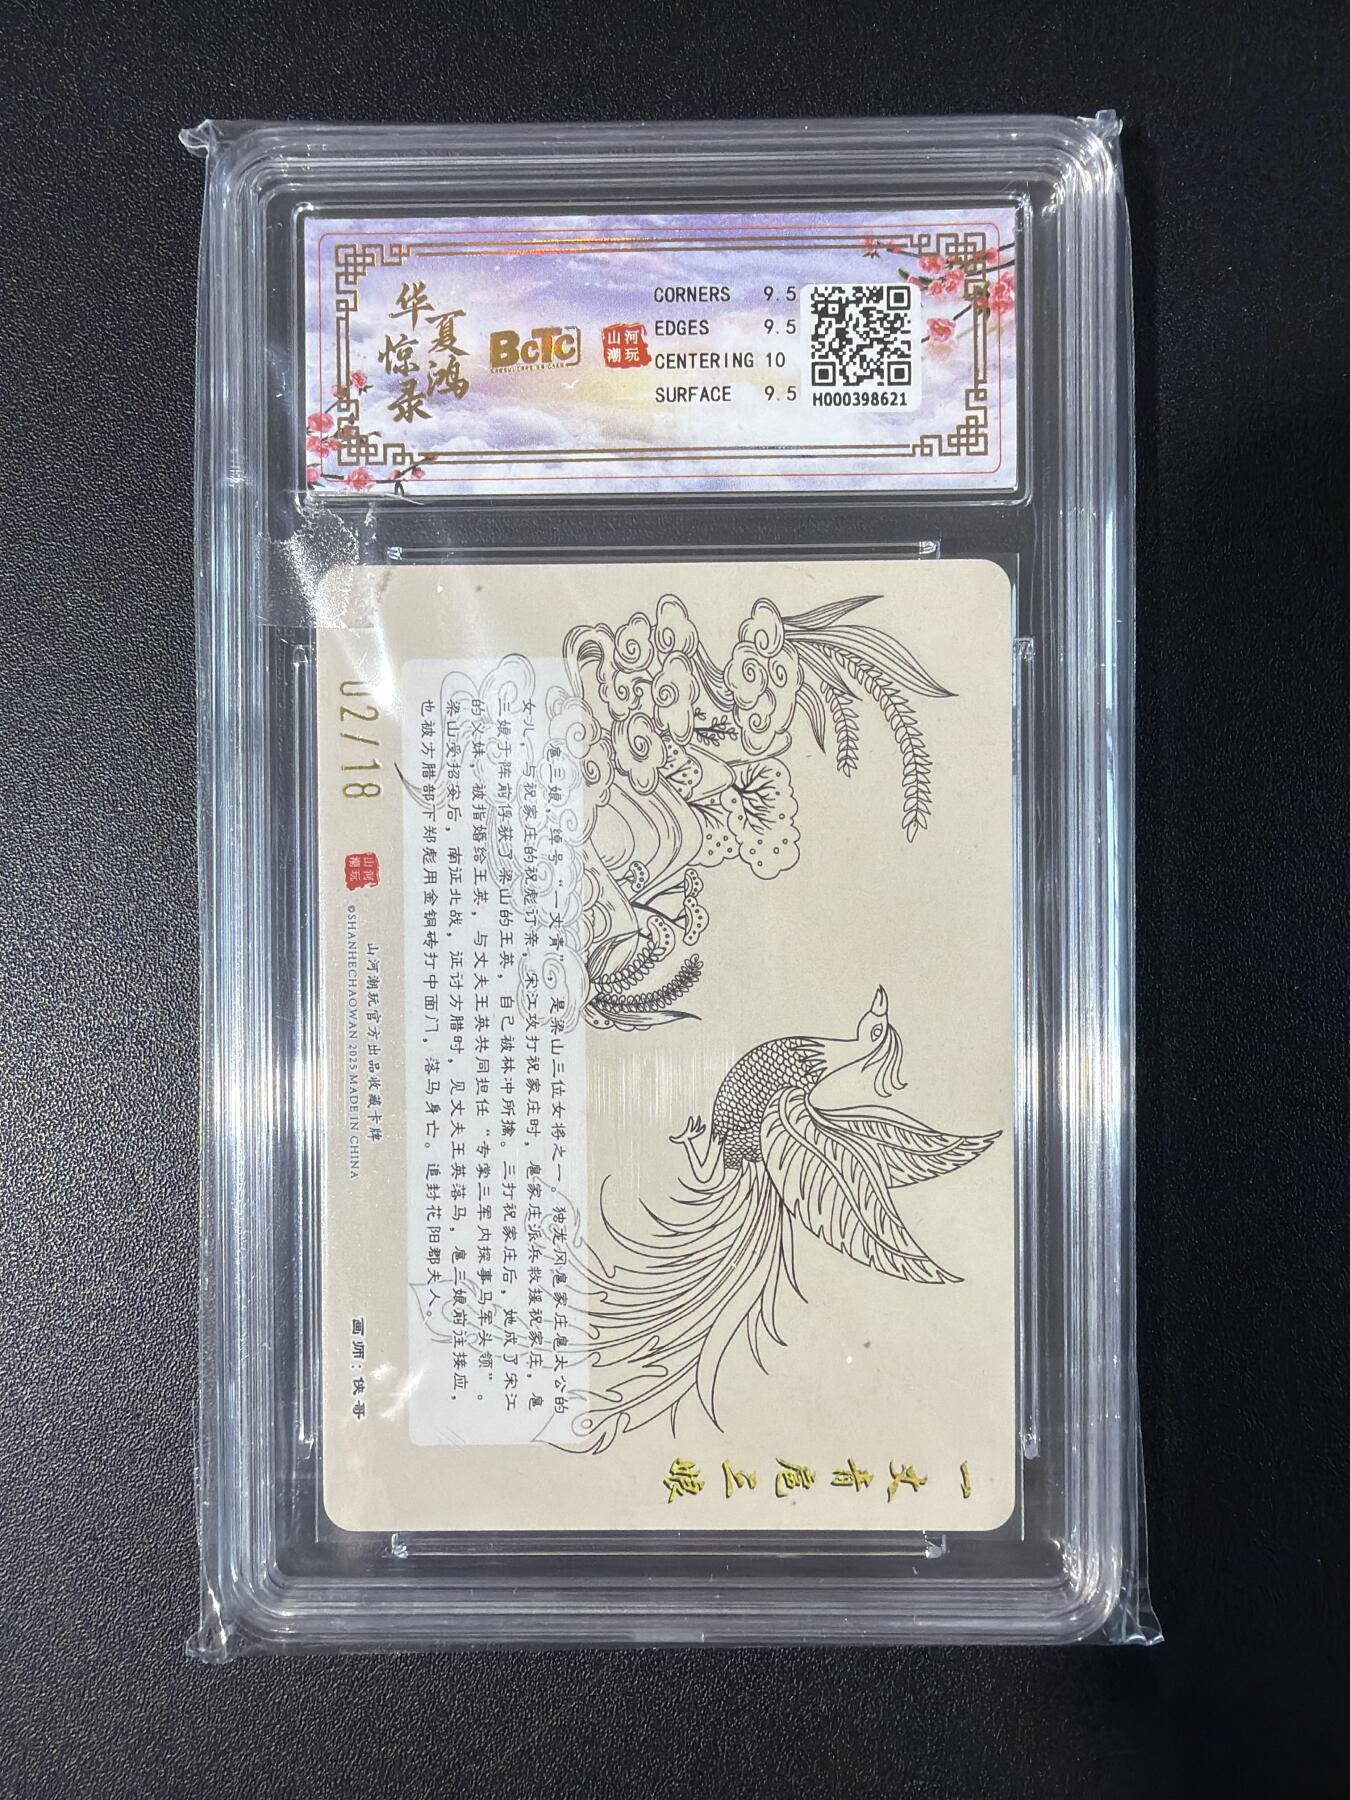 华夏
惊鸿
录
BCTC
山河
潮玩
CORNERS 9.5
EDGES 9.5
CENTERING 10
SURFACE 9.5
H000398621
一丈青扈三娘
扈三娘，绰号“一丈青”，是梁山三位女将之一。独龙冈扈家庄扈太公的
女儿，与祝家庄的祝彪订亲，宋江攻打祝家庄时，扈家庄派兵救援祝家庄，扈
三娘于阵前俘获了梁山的王英，自己被林冲所擒。三打祝家庄后，她成了宋江
的义妹，被指婚给王英，与丈夫王英共同担任“专掌三军内探事马军头领”。
梁山受招安后，南征北战，征讨方腊时，见丈夫王英落马，扈三娘前往接应，
也被方腊部下郑彪用金铜砖打中面门，落马身亡。追封花阳郡夫人。
02/18
山河
潮玩
山河潮玩官方出品收藏卡牌
©SHANHECHAOWAN 2025 MADE IN CHINA
画师：侠哥